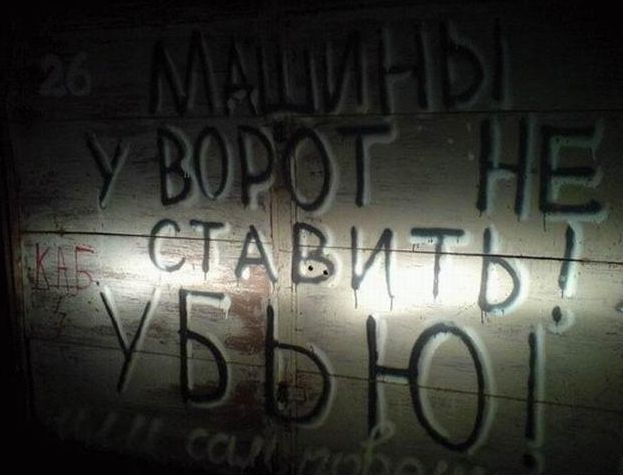 26 МАШИНЫ
У ВОРОТ НЕ
СТАВИТЬ!
КАБ.
УБЬЮ!
или сам